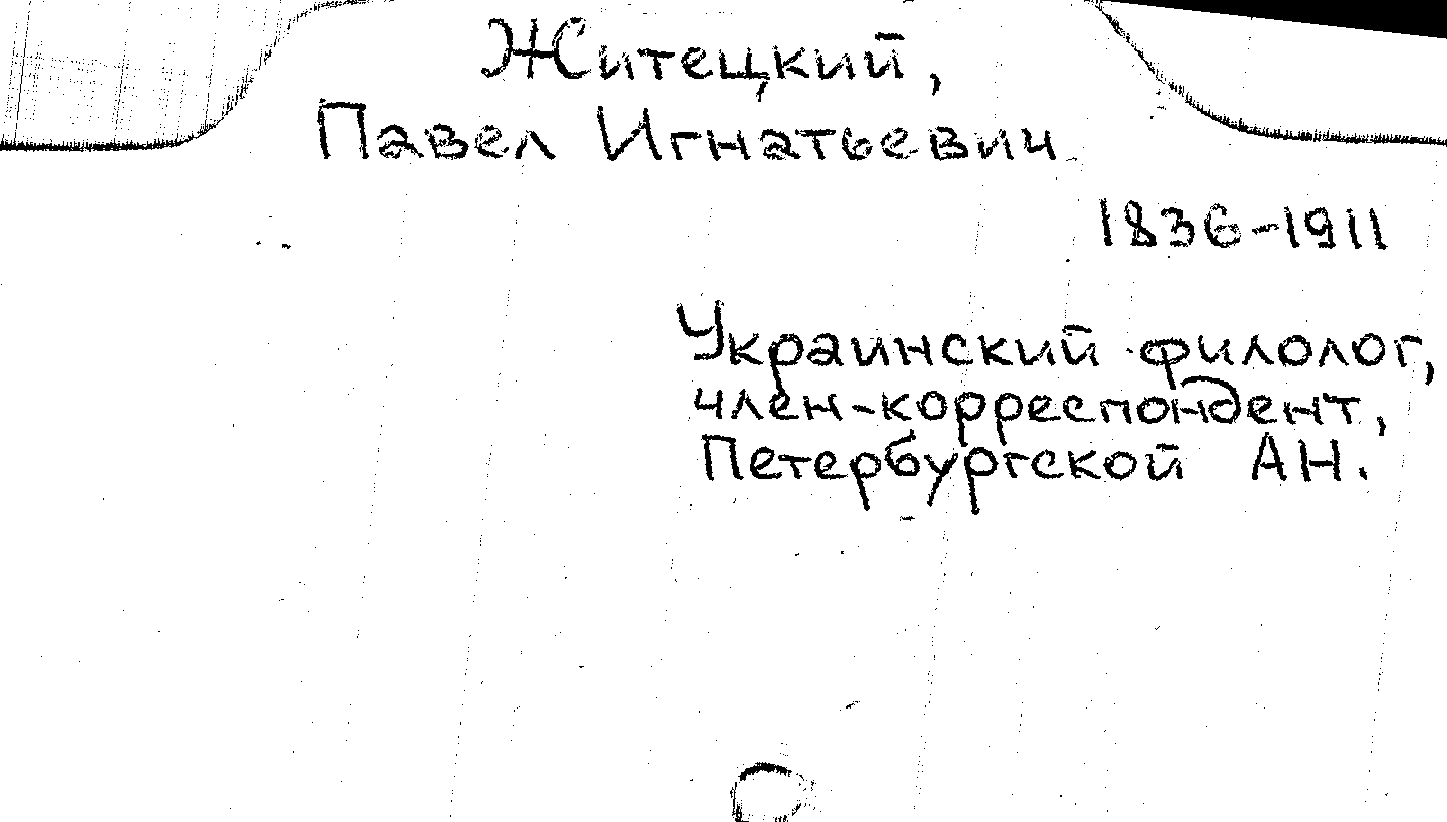 Житецкий,
Павел Игнатьевич
1836-1911
Украинский филолог,
член-корреспондент,
Петербургской АН.